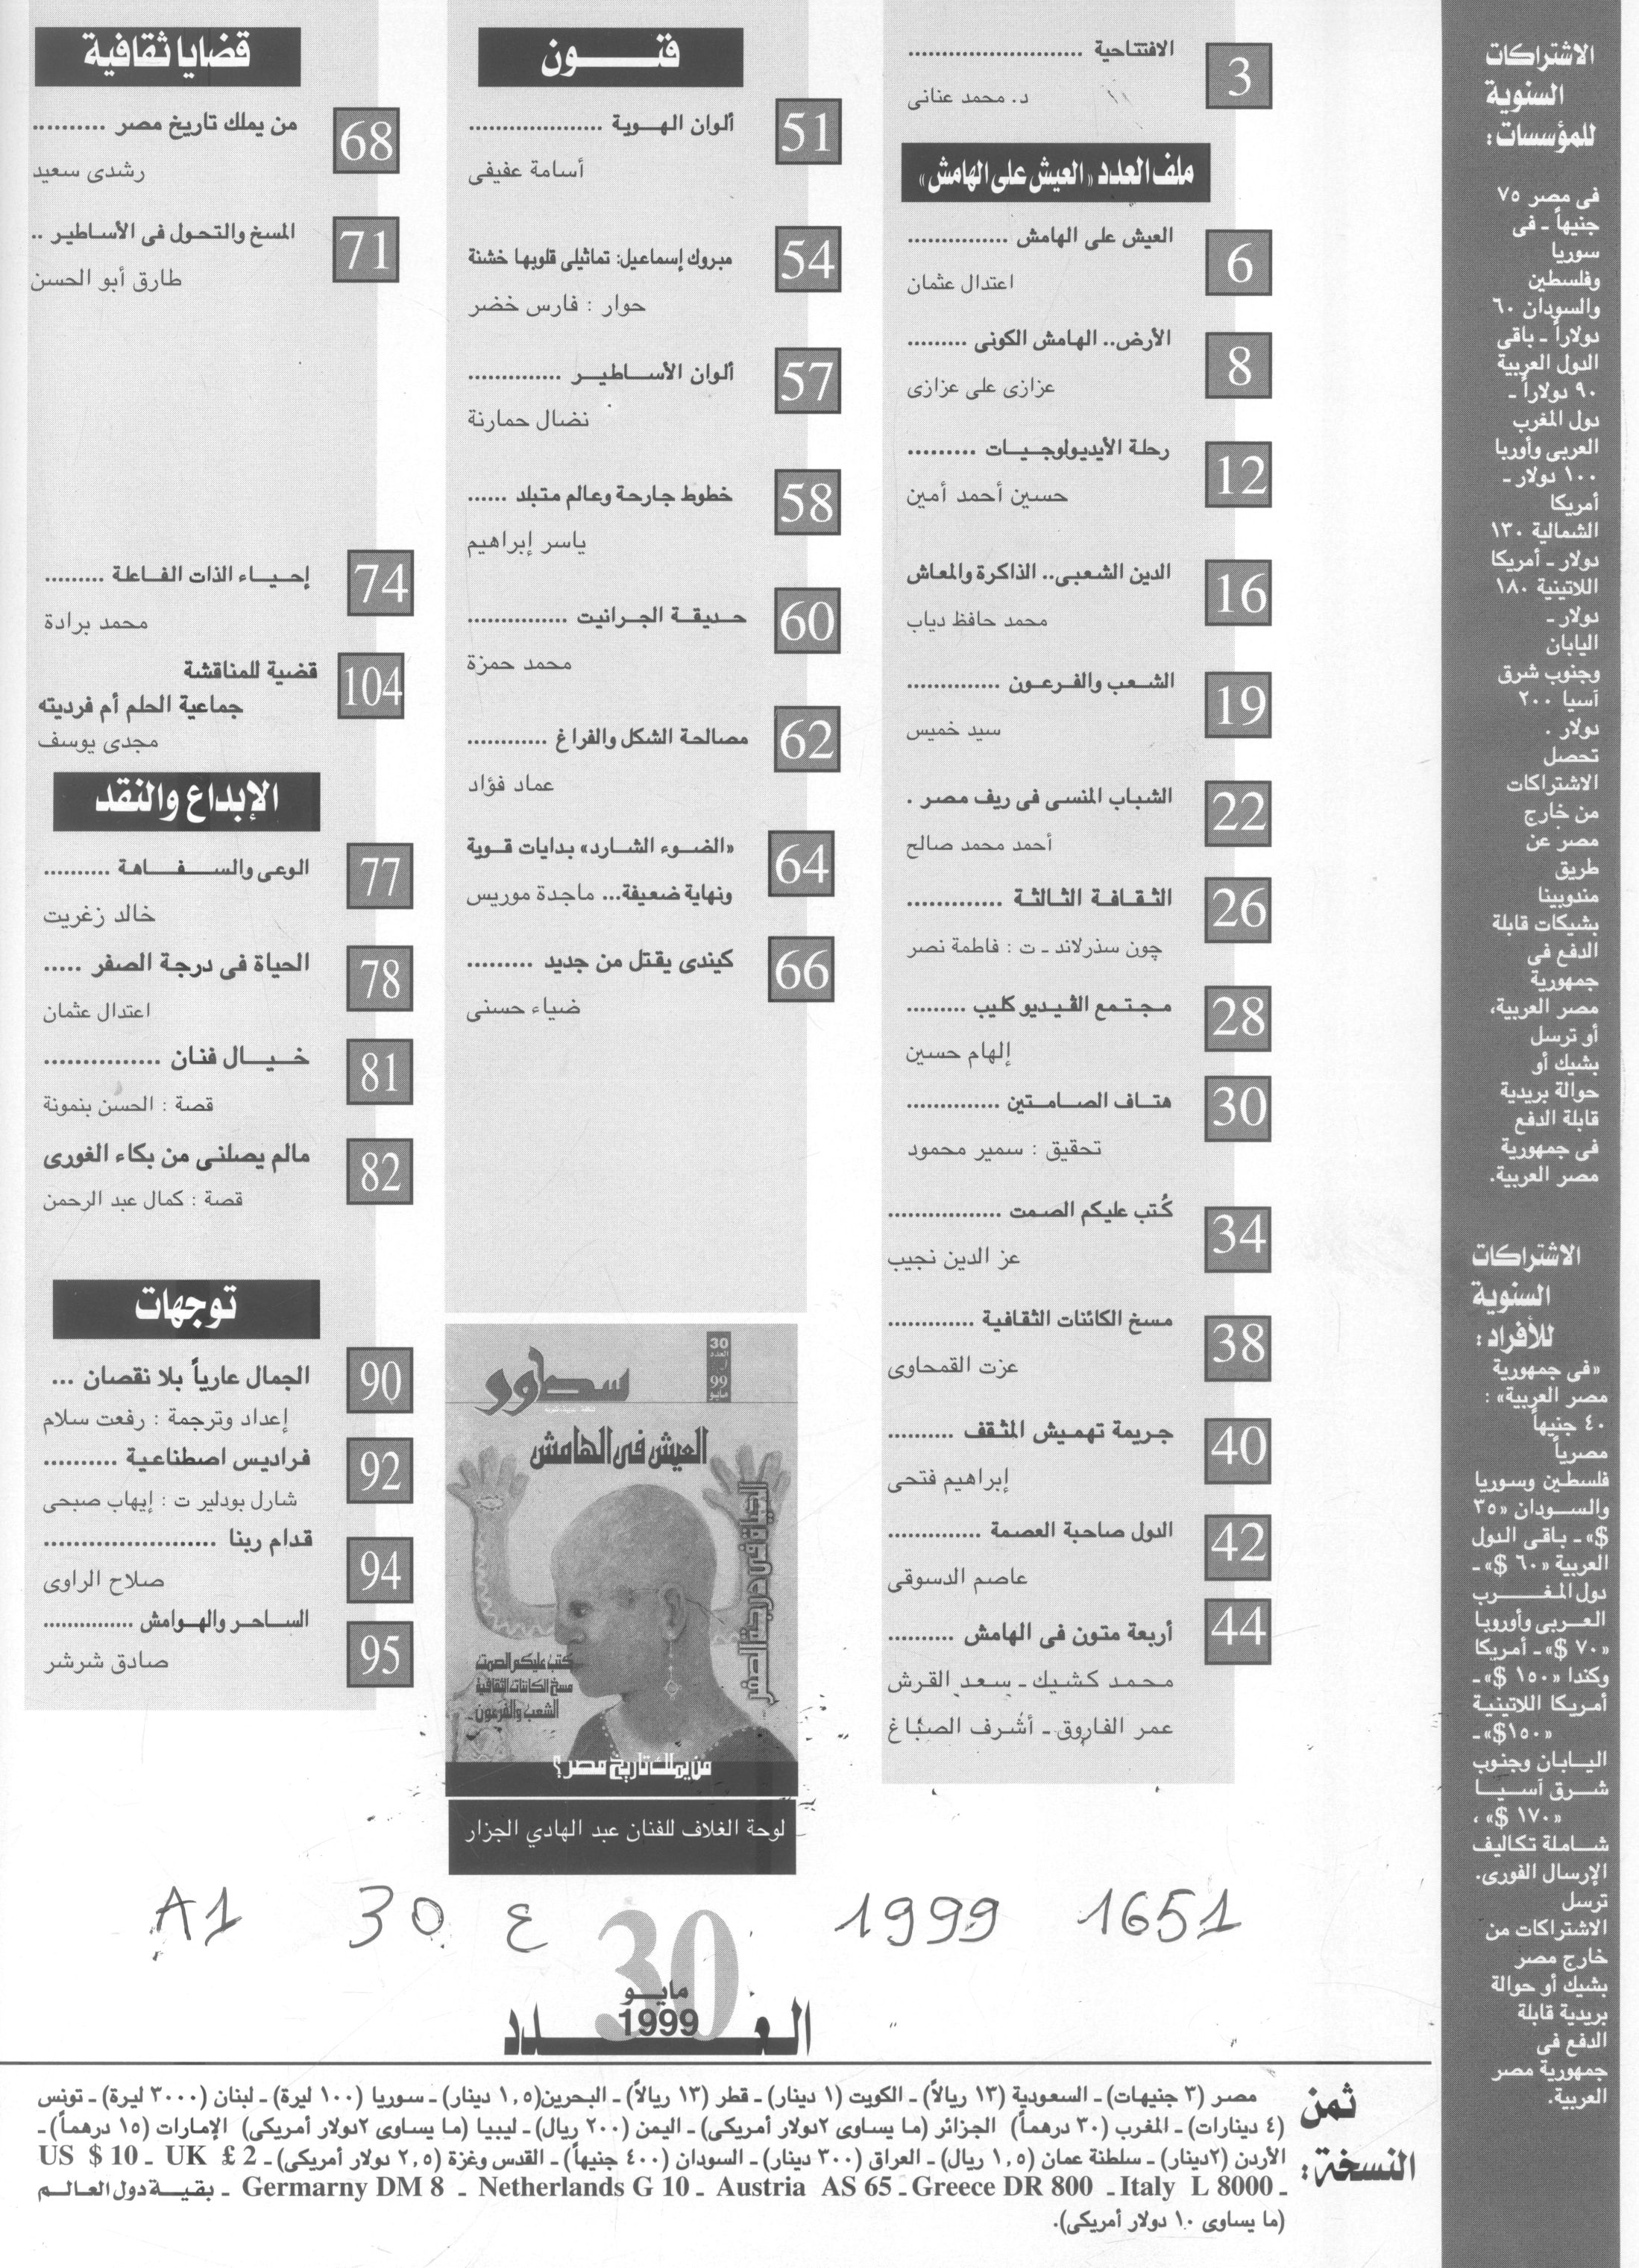 الاشتراكات
السنوية
للمؤسسات :
فى مصر ٧٥
جنيهاً ـ فى
سوريا
وفلسطين
والسودان ٦٠
دولاراً ـ باقى
الدول العربية
٩٠ دولاراً ـ
دول المغرب
العربى وأوربا
١٠٠ دولار ـ
أمريكا
الشمالية ١٣٠
دولار ـ أمريكا
اللاتينية ١٨٠
دولار ـ
اليابان
وجنوب شرق
آسيا ٢٠٠
دولار .
تحصل
الاشتراكات
من خارج
مصر عن
طريق
مندوبينا
بشيكات قابلة
الدفع فى
جمهورية
مصر العربية،
أو ترسل
بشيك أو
حوالة بريدية
قابلة الدفع
فى جمهورية
مصر العربية.
الاشتراكات
السنوية
للأفراد :
«فى جمهورية
مصر العربية» :
٤٠ جنيهاً
مصرياً
فلسطين وسوريا
والسودان «٣٥
$» ـ باقى الدول
العربية «٦٠ $» ـ
دول المغرب
العربى وأوروبا
«٧٠ $» ـ أمريكا
وكندا «١٥٠ $» ـ
أمريكا اللاتينية
«١٥٠$» ـ
اليابان وجنوب
شرق آسيا
«١٧٠ $» ،
شاملة تكاليف
الإرسال الفورى.
ترسل
الاشتراكات من
خارج مصر
بشيك أو حوالة
بريدية قابلة
الدفع فى
جمهورية مصر
العربية.
3 الافتتاحية ..........................
د. محمد عنانى
ملف العدد «العيش على الهامش»
6 العيش على الهامش ...............
اعتدال عثمان
8 الأرض.. الهامش الكونى .........
عزازى على عزازى
12 رحلة الأيديولوجيات ..........
حسين أحمد أمين
16 الدين الشعبى.. الذاكرة والمعاش
محمد حافظ دياب
19 الشعب والفرعون ..............
سيد خميس
22 الشباب المنسى فى ريف مصر .
أحمد محمد صالح
26 الثقافة الثالثة .............
چون سذرلاند ـ ت : فاطمة نصر
28 مجتمع الڤيديو كليب .........
إلهام حسين
30 هتاف الصامتين ..............
تحقيق : سمير محمود
34 كُتب عليكم الصمت .................
عز الدين نجيب
38 مسخ الكائنات الثقافية .............
عزت القمحاوى
40 جريمة تهميش المثقف ..........
إبراهيم فتحى
42 الدول صاحبة العصمة ..............
عاصم الدسوقى
44 أربعة متون فى الهامش ..........
محمد كشيك ـ سعد القرش
عمر الفاروق ـ أشرف الصباغ
فنون
51 ألوان الهوية ....................
أسامة عفيفى
54 مبروك إسماعيل: تماثيلى قلوبها خشنة
حوار : فارس خضر
57 ألوان الأساطير ..............
نضال حمارنة
58 خطوط جارحة وعالم متبلد ......
ياسر إبراهيم
60 حديقة الجرانيت ...............
محمد حمزة
62 مصالحة الشكل والفراغ ............
عماد فؤاد
64 «الضوء الشارد» بدايات قوية
ونهاية ضعيفة... ماجدة موريس
66 كيندى يقتل من جديد ..........
ضياء حسنى
30
العدد
مايو
99
سطور
العيش فى الهامش
الحياة فى درجة الصفر
كتب عليكم الصمت
مسخ الكائنات الثقافية
الشعب والفرعون
من يملك تاريخ مصر ؟
لوحة الغلاف للفنان عبد الهادي الجزار
قضايا ثقافية
68 من يملك تاريخ مصر ..........
رشدى سعيد
71 المسخ والتحول فى الأساطير ..
طارق أبو الحسن
74 إحياء الذات الفاعلة .........
محمد برادة
104 قضية للمناقشة
جماعية الحلم أم فرديته
مجدى يوسف
الإبداع والنقد
77 الوعى والسفاهة ..........
خالد زغريت
78 الحياة فى درجة الصفر .....
اعتدال عثمان
81 خيال فنان ................
قصة : الحسن بنمونة
82 مالم يصلنى من بكاء الغورى
قصة : كمال عبد الرحمن
توجهات
90 الجمال عارياً بلا نقصان ...
إعداد وترجمة : رفعت سلام
92 فراديس اصطناعية ..........
شارل بودلير ت : إيهاب صبحى
94 قدام ربنا ........................
صلاح الراوى
95 الساحر والهوامش ...............
صادق شرشر
A1 30 ع 1999 1651
30
مايو
1999
العدد
ثمن
النسخة :
مصر (٣ جنيهات) ـ السعودية (١٣ ريالاً) ـ الكويت (١ دينار) ـ قطر (١٣ ريالاً) ـ البحرين(١,٥ دينار) ـ سوريا (١٠٠ ليرة) ـ لبنان (٣٠٠٠ ليرة) ـ تونس
(٤ دينارات) ـ المغرب (٣٠ درهماً) الجزائر (ما يساوى ٢دولار أمريكى) ـ اليمن (٢٠٠ ريال) ـ ليبيا (ما يساوى ٢دولار أمريكى) الإمارات (١٥ درهماً) ـ
الأردن (٢دينار) ـ سلطنة عمان (١,٥ ريال) ـ العراق (٣٠٠ دينار) ـ السودان (٤٠٠ جنيهاً) ـ القدس وغزة (٢,٥ دولار أمريكى) ـ US $ 10 ـ UK £ 2
ـ Germarny DM 8 ـ Netherlands G 10 ـ Austria AS 65 ـ Greece DR 800 ـ Italy L 8000 ـ بقية دول العالم
(ما يساوى ١٠ دولار أمريكى).